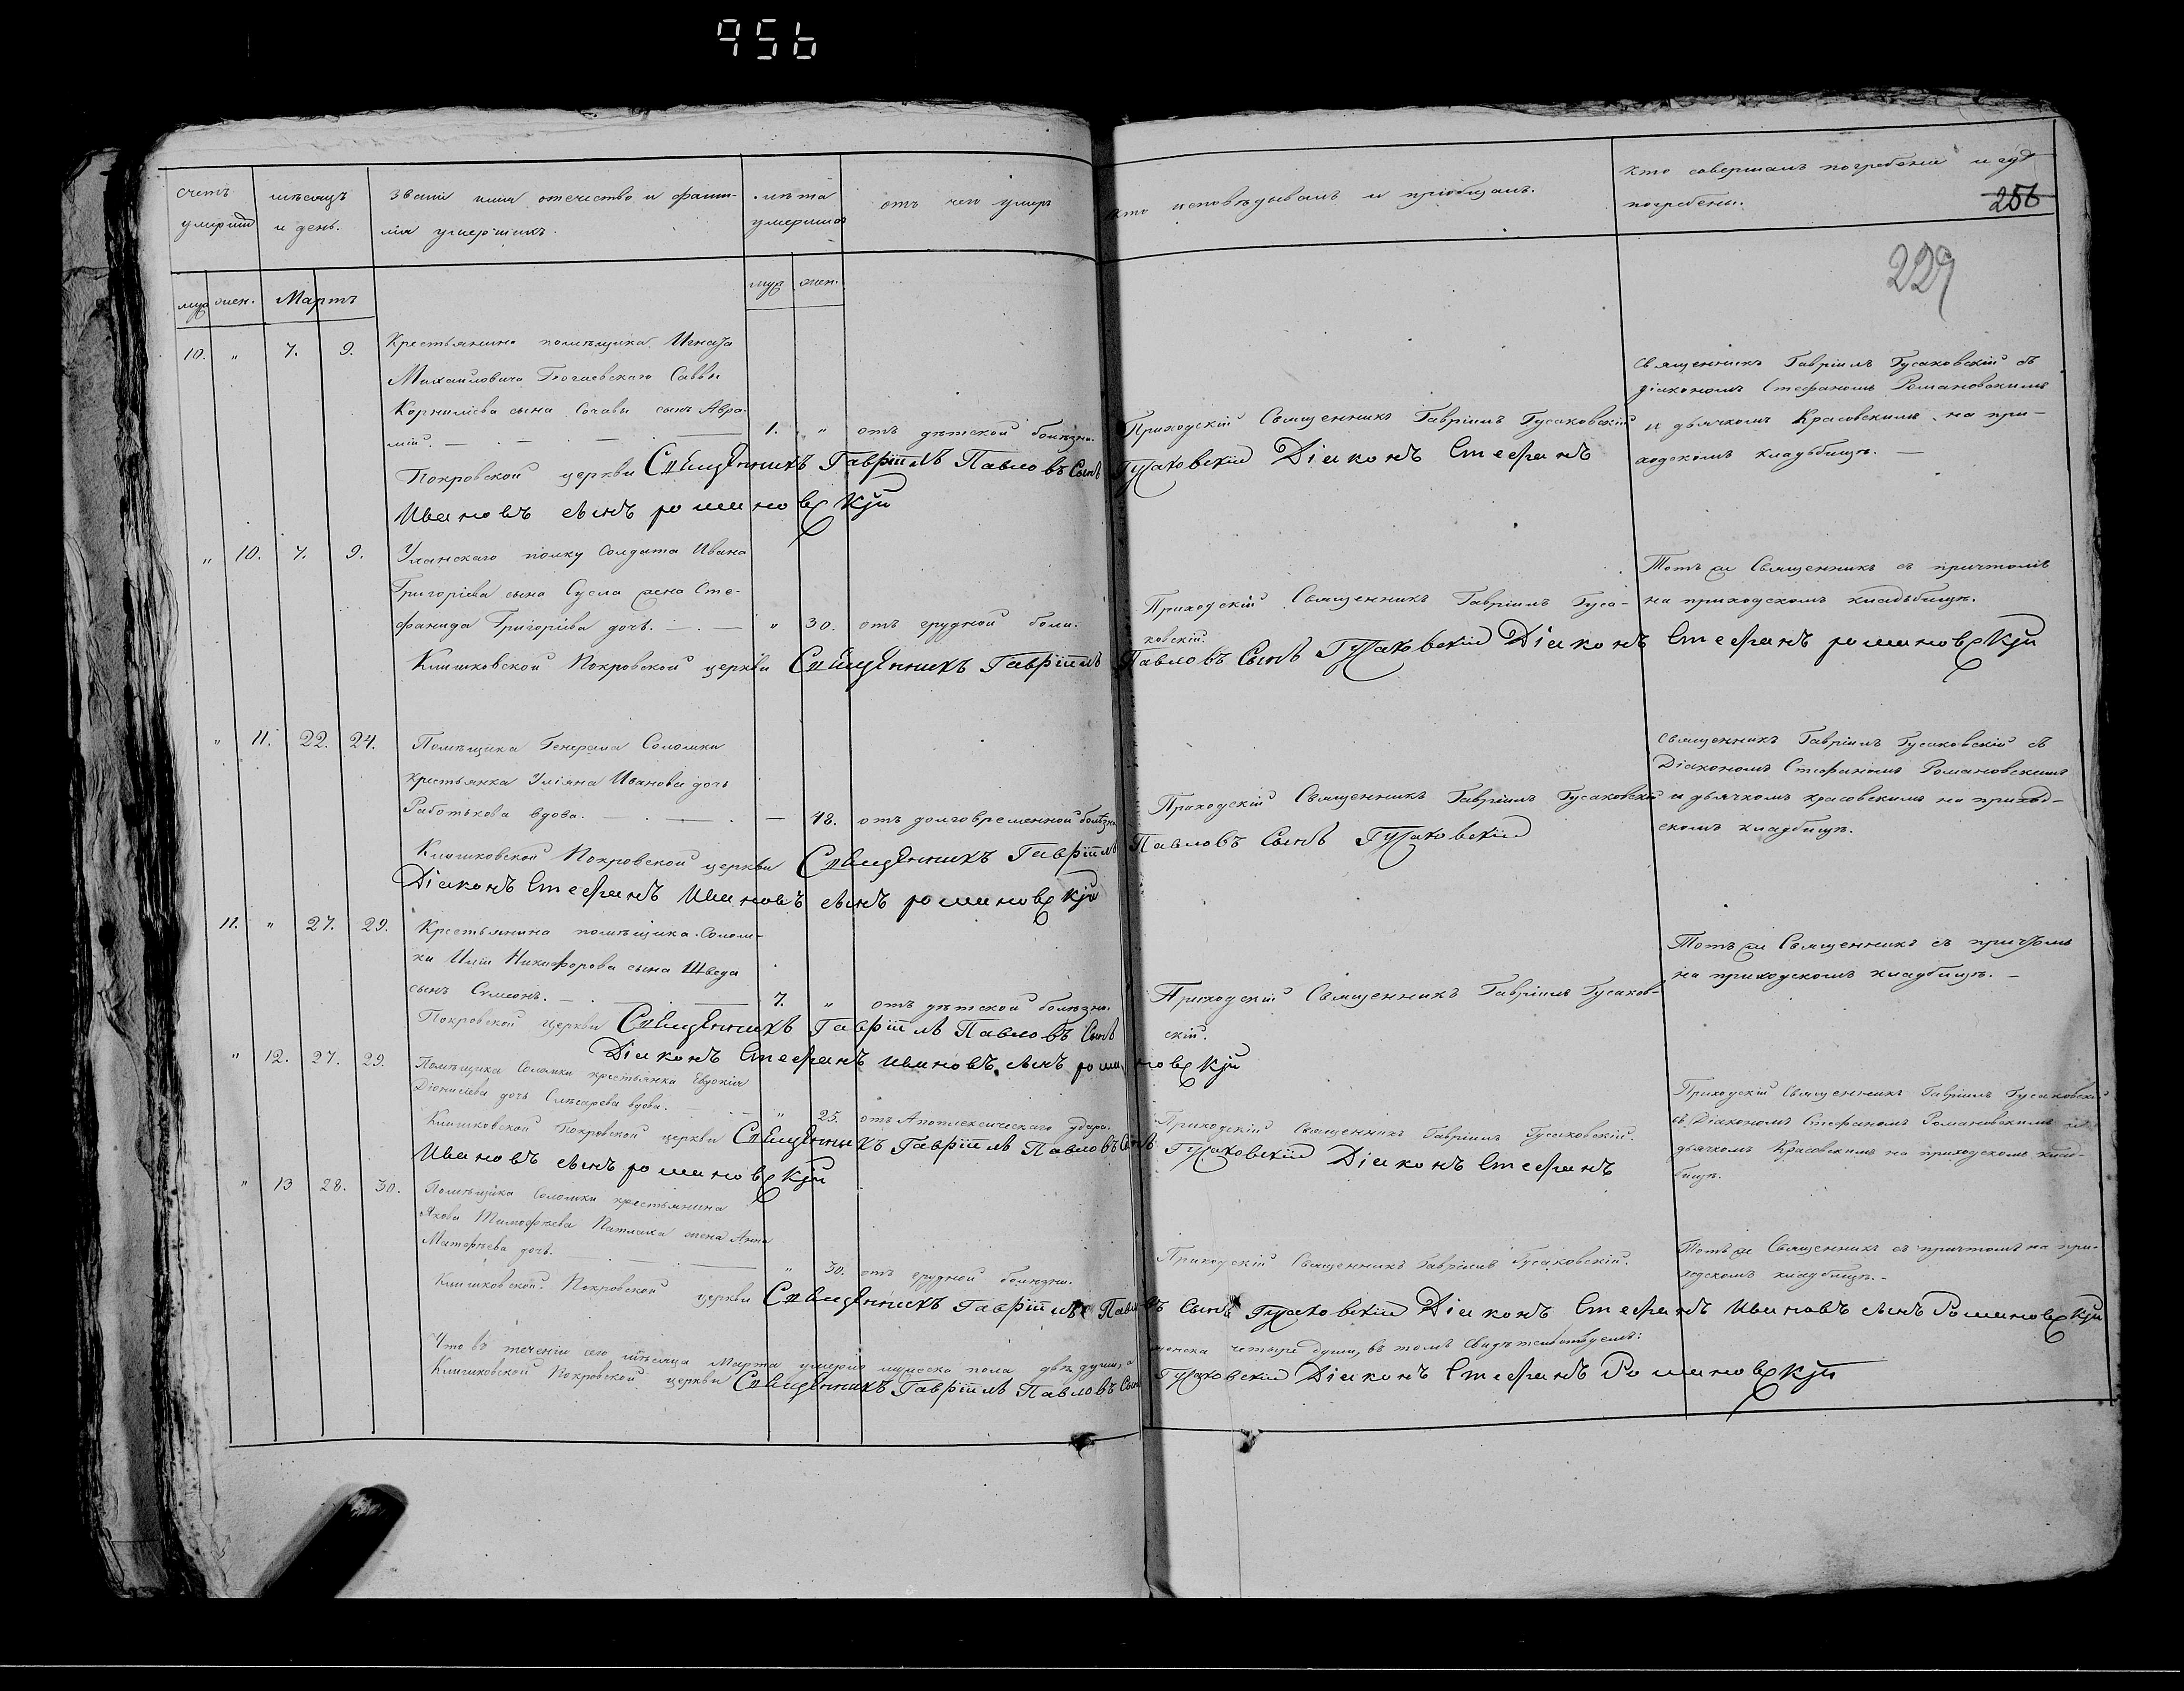 956
счетъ умершихъ
мѣсяцъ и день.
званіе имя отечество и фами-
лія умершихъ.
лѣта умершихъ
отъ чего умеръ
кто исповѣдывалъ и пріобщалъ.
кто совершалъ погребеніе и гдѣ
погребены.
256
229
муж. жен. Мартъ
муж. жен.
10. " 7. 9. Крестьянина помѣщика Игнатія
Михайловича Саввы
Корниліева сына сынъ Авра-
мій. 1. " отъ дѣтской болѣзни.
Приходскій Священникъ Гавріилъ Гусаковскій
Священникъ Гавріилъ Гусаковскій съ
діакономъ Стефаномъ Романовскимъ
и дьячкомъ Красовскимъ на при-
ходскомъ кладьбищѣ.
Покровской церкви Священникъ Гавріилъ Павловъ Сынъ Гусаковскій Діаконъ Стефанъ
Ивановъ сынъ романовскій
" 10. 7. 9. Уланскаго полку Солдата Ивана
Григоріева сына Сусла жена Сте-
фанида Григоріева дочь. " 30. отъ грудной боли.
Приходскій Священникъ Гавріилъ Гуса-
ковскій.
Тотъ же Священникъ съ причтомъ
на приходскомъ кладьбищѣ.
Клишковской Покровской церкви Священникъ Гавріилъ Павловъ Сынъ Гусаковскій Діаконъ Стефанъ романовскій
" 11. 22. 24. Помѣщика Генерала Соломки
крестьянка Уліяна Иванова дочь
Работькова вдова. — 48. отъ долговременной болѣзни
Приходскій Священникъ Гавріилъ Гусаковскій
Священникъ Гавріилъ Гусаковскій съ
Діакономъ Стефаномъ Романовскимъ
и дьячкомъ красовскимъ на приход-
скомъ кладбищѣ.
Клишковской Покровской церкви Священникъ Гавріилъ Павловъ Сынъ Гусаковскій
Діаконъ Стефанъ Ивановъ сынъ романовскій
11. " 27. 29. Крестьянина помѣщика Солом-
ки Иліи Никифорова сына Шведа
сынъ Симеонъ. 7. " отъ дѣтской болѣзни.
Приходскій Священникъ Гавріилъ Гусаков-
скій.
Тотъ же Священникъ съ причтомъ
на приходскомъ кладбищѣ.
Покровской церкви Священникъ Гавріилъ Павловъ Сынъ
Діаконъ Стефанъ Ивановъ сынъ романовскій
" 12. 27. 29. Помѣщика Соломки крестьянка Евдокія
Діонисіева дочь Слѣсарева вдова. " 25. отъ Апоплексическаго удара.
Приходскій Священникъ Гавріилъ Гусаковскій.
Приходскій Священникъ Гавріилъ Гусаковскій
съ Діакономъ Стефаномъ Романовскимъ и
дьячкомъ Красовскимъ на приходскомъ клад-
бищѣ.
Клишковской Покровской церкви Священникъ Гавріилъ Павловъ Сынъ Гусаковскій Діаконъ Стефанъ
Ивановъ сынъ романовскій
" 13 28. 30. Помѣщика Соломки крестьянина
Якова Тимофѣева Патлаха жена Анна
Матфѣева дочь. " 30. отъ грудной болѣзни.
Приходскій Священникъ Гавріилъ Гусаковскій.
Тотъ же Священникъ съ причтомъ на при-
ходскомъ кладбищѣ.
Клишковской Покровской церкви Священникъ Гавріилъ Павловъ Сынъ Гусаковскій Діаконъ Стефанъ Ивановъ сынъ Романовскій
Что въ теченіи сего мѣсяца Марта умерло мужеска пола двѣ души, а женска четыре души, въ томъ свидѣтельствуемъ:
Клишковской Покровской церкви Священникъ Гавріилъ Павловъ Сынъ Гусаковскій Діаконъ Стефанъ Романовскій